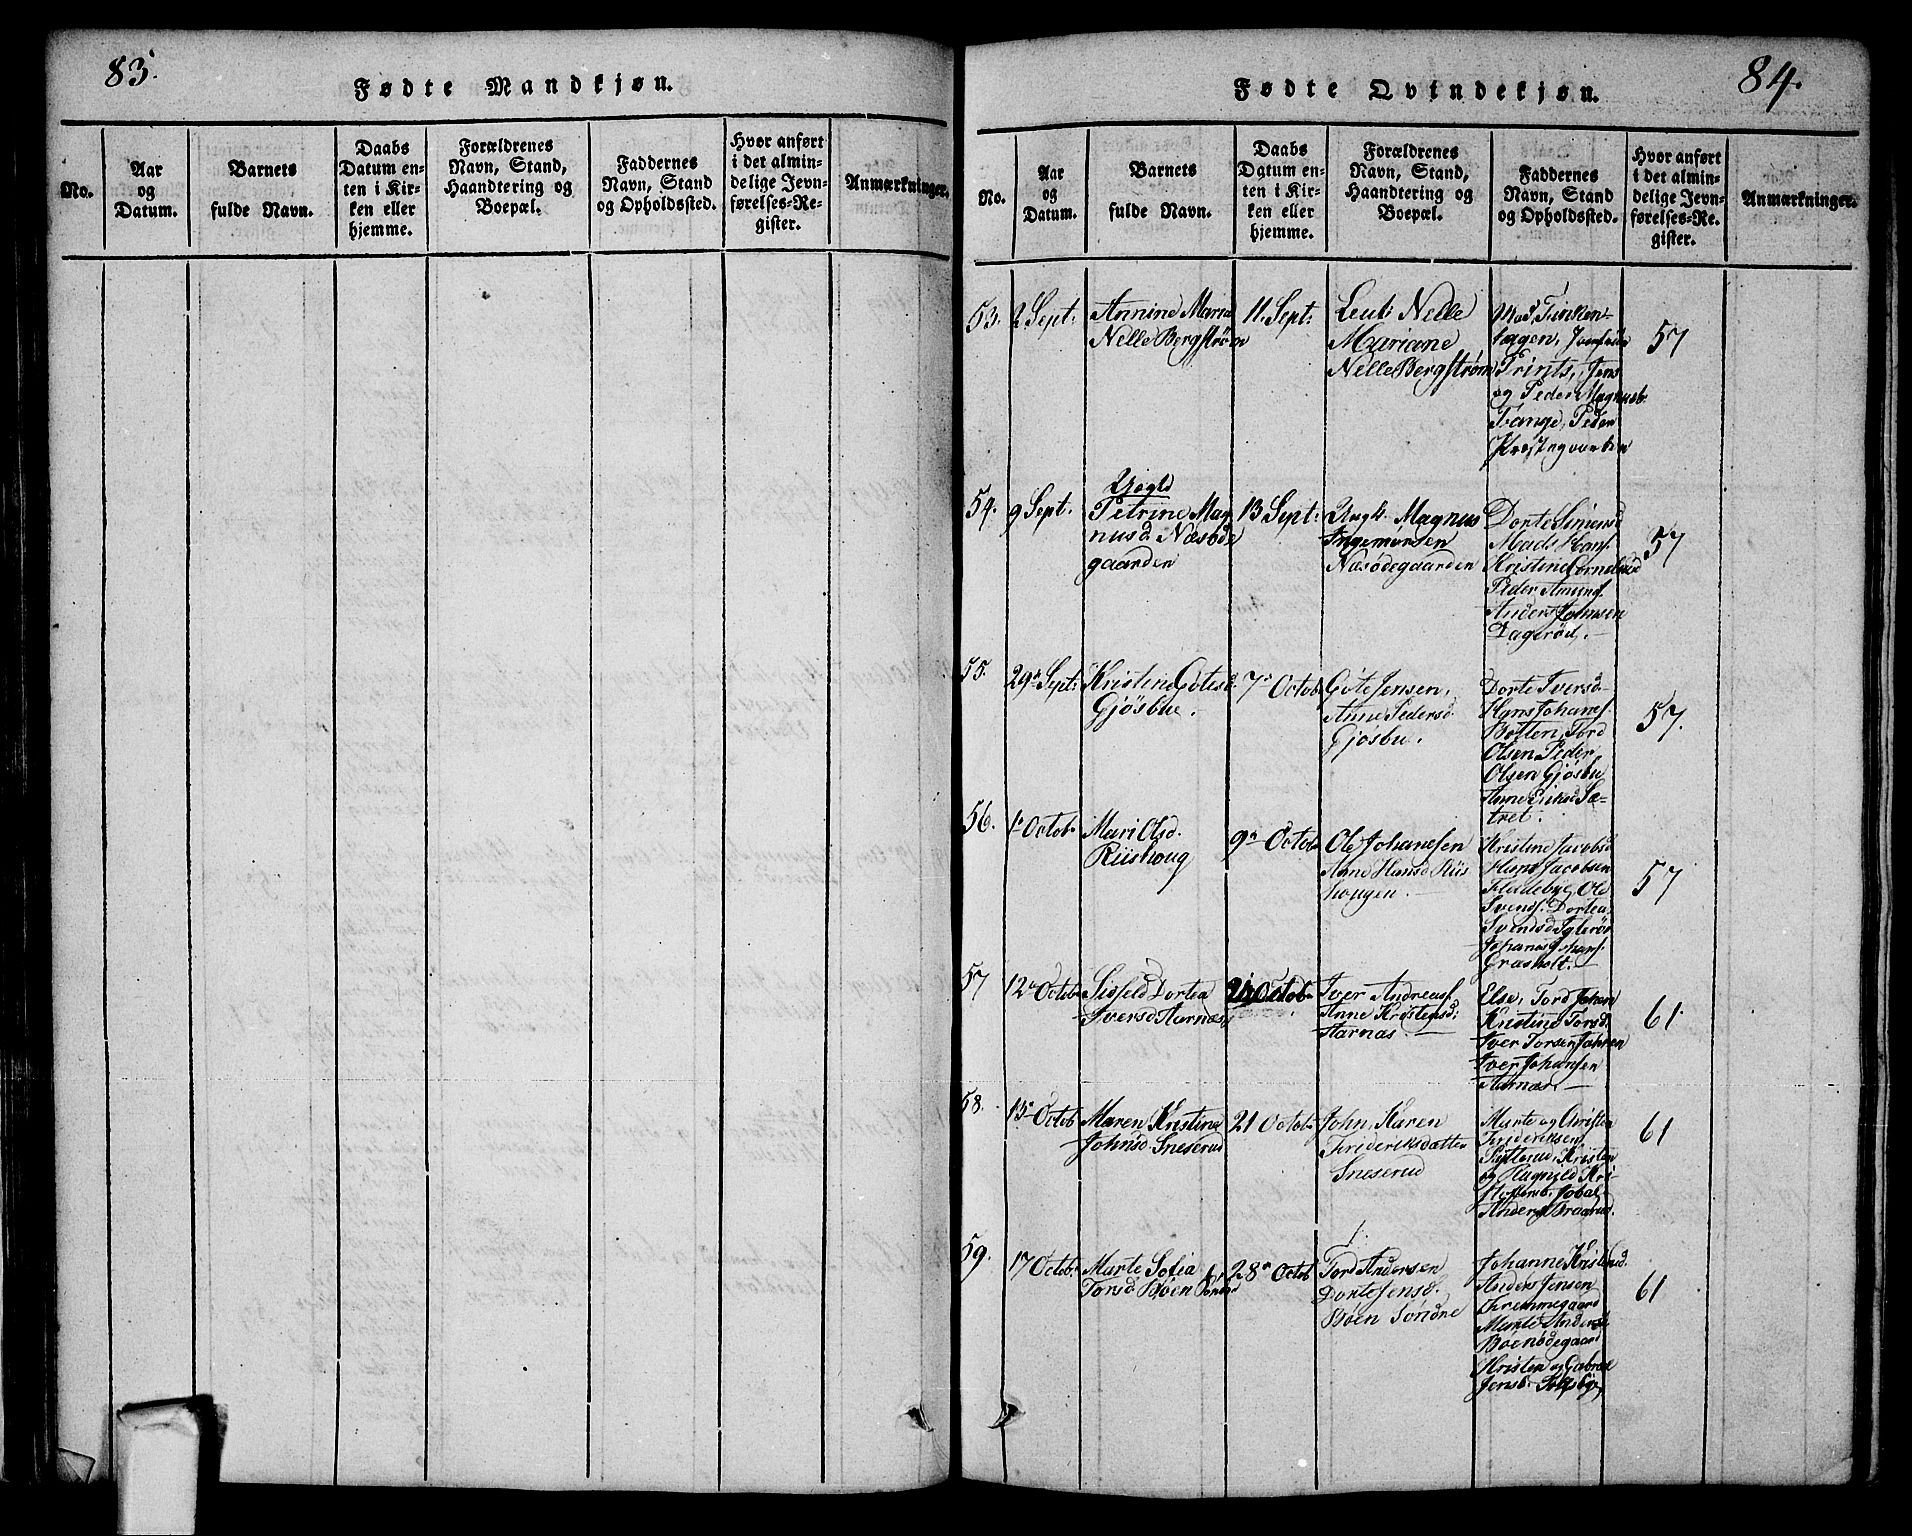 83.
Fødte Mandkjøn.
No.
Aar
og
Datum.
Barnets
fulde Navn.
Daabs
Datum en-
ten i Kir-
ken eller
hjemme.
Forældrenes
Navn, Stand,
Haandtering og
Boepæl.
Faddernes
Navn, Stand
og Opholdssted.
Hvor anført
i det almin-
delige Jevn-
førelses-Re-
gister.
Anmærkninger.
84.
Fødte Qvindekjøn.
No.
Aar
og
Datum.
Barnets
fulde Navn.
Daabs
Datum en-
ten i Kir-
ken eller
hjemme.
Forældrenes
Navn, Stand,
Haandtering og
Boepæl.
Faddernes
Navn, Stand
og Opholdssted.
Hvor anført
i det almin-
delige Jevn-
førelses-Re-
gister.
Anmærkninger.
53.
2 Sept:
Annine Maria
Nelle Bergstrøm
11. Sept:
Leut: Nelle
Mariane
Nelle Bergstrøm
Trints, Jens
og Peder Magnusb.
Tange, Peder
57
54.
9 Sept.
Uegte
Petrine Mag
nusd Næsøde
gaarden
13 Sept:
Ungk. Magnus
Ingemorsen
Næsødegaarden
Dorte Simensd
Mads Hans.
Kristine Cornelius
Peder Amunds.
Anders Johnsen
Dagerød.
57
55.
29 Sept:
Kristine Gotesd.
Gjøsbue.
7 Octob
Gote Jensen,
Anne Pedersd.
Gjøsbu.
Dorte Iversd
Hans Johans.
Botten, Tord
Olsen Peder
Olsen Gjøsbu
Anne Eriksd Sæ-
tret.
57.
56.
1 Octob
Mari Olsd.
Riishoug
9 Octob
Ole Johansen
Anne Hansd Riis
hougen.
Kristine Jacobsd
Hans Jacobsen
Fladebye, Ole
Svends. Dortea
Svendsd Iglerøs
Johannes Johans.
Grasholt.
57
57
12 Octob
Sidseld Dortea
Iversd Aarnæs
21 Octob
Iver Andreas.
Anne Kristensd:
Aarnæs.
Else, Tord Johan
Kristine Torsd.
Iver Torsen Johnsen
Iver Johansen
Aarnæs.
61.
58.
15 Octob
Maren Kristine
Johnsd Sneserud
21 Octob
John, Karen
Frideriksdatter
Sneserud
Marte og Christen
Frideriksen
Sætterud, Kristen
og Ragnild Kri-
Anders Braarud.
61
59.
17 Octob
Marte Sofia
Torsd Bøen
28 Octob
Tord Andersen
Dorte Jensd.
Bøen Søndre
Johanne Kristensd.
Anders Jensen
Fremmegaard
Marte Andersd
Bøenødegaard
Kristen og Gabriel
Jensb. Solsbye
61